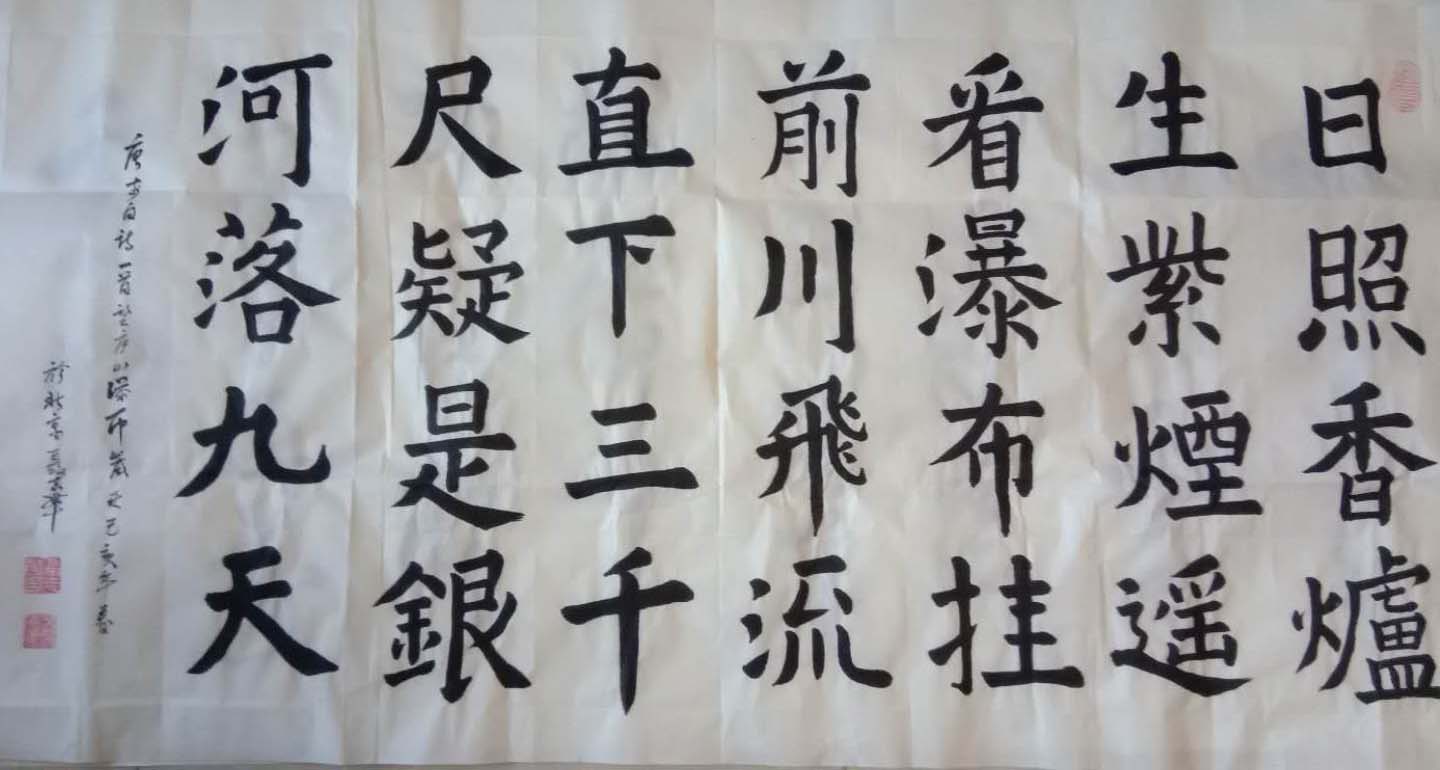 日照香爐
生紫煙遥
看瀑布挂
前川飛流
直下三千
尺疑是銀
河落九天
唐李白詩一首望庐山瀑布歲次己亥年春
於北京